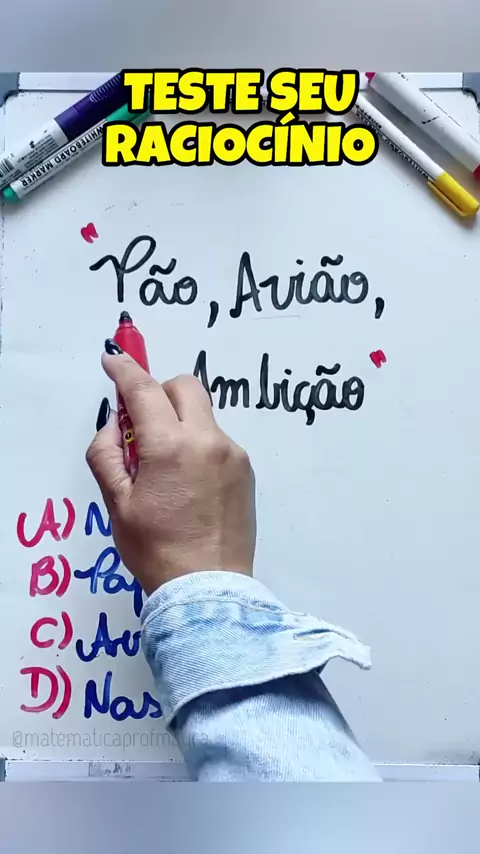 TESTE SEU
RACIOCÍNIO
WHITEBOARD MARKER
"Pão, Avião,
Ambição"
A) N
B) Pa
C) Av
D) Nas
@matematicaprofmaluca